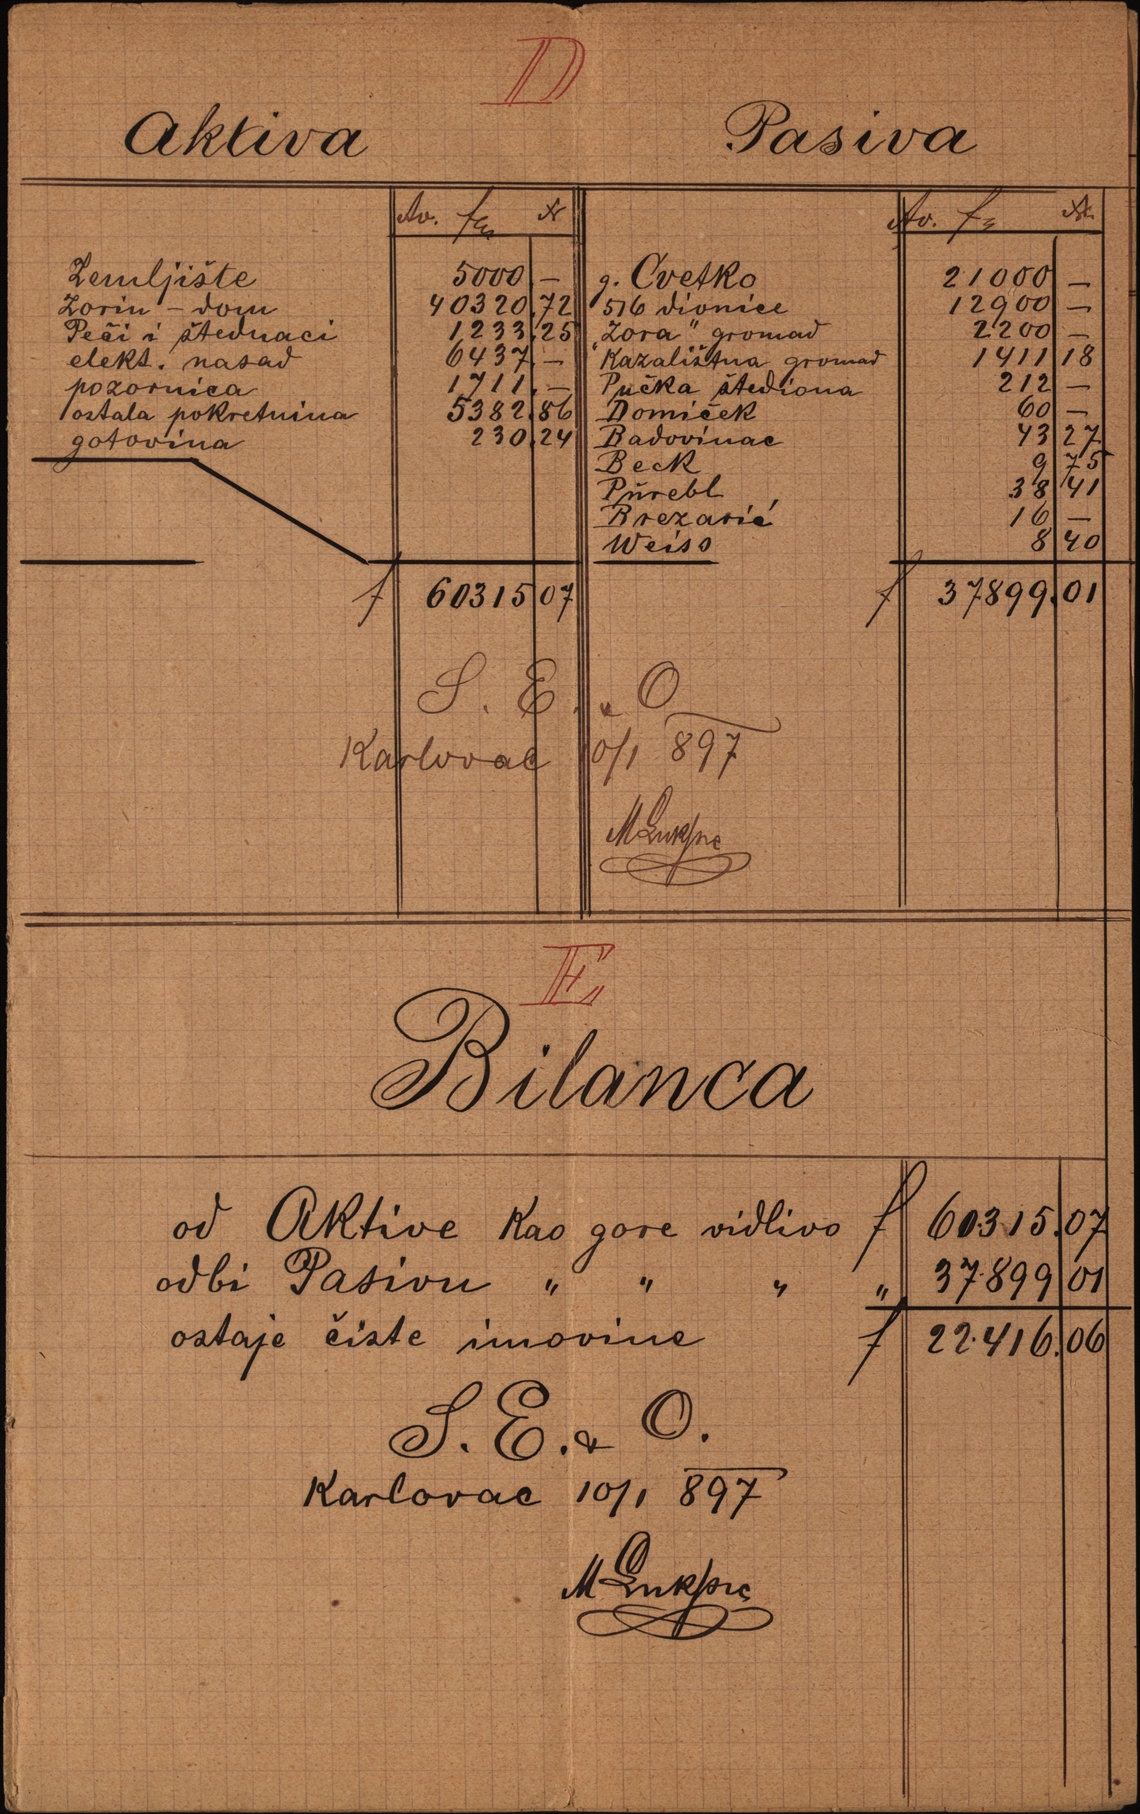 D
Aktiva
Av. fr. N
Zemljište 5000 —
Zorin – dom 40320.72
Peči i štednaci 1233.25
elekt. nasad 6437. —
pozornica 1711. —
ostala pokretnina 5382.86
gotovina 230.24
f 60315 07
Pasiva
Av. fr. N
g. Cvetko 21000 —
516 dionice 12900 —
„Zora" gromad 2200 —
Kazalištna gromad 1411 18
Pučka štediona 212 —
Domiček 60 —
Badovinac 43 27
Beck 9 75
Pürebl 38 41
Brezarić 16 —
Weiss 8 40
f 37899.01
S. E. & O
Karlovac 10/1 897
E
Bilanca
od Aktive kao gore vidlivo f 60315.07
odbi Pasivu " " " " 37899 01
ostaje čiste imovine f 22.416.06
S. E. & O.
Karlovac 10/1 897